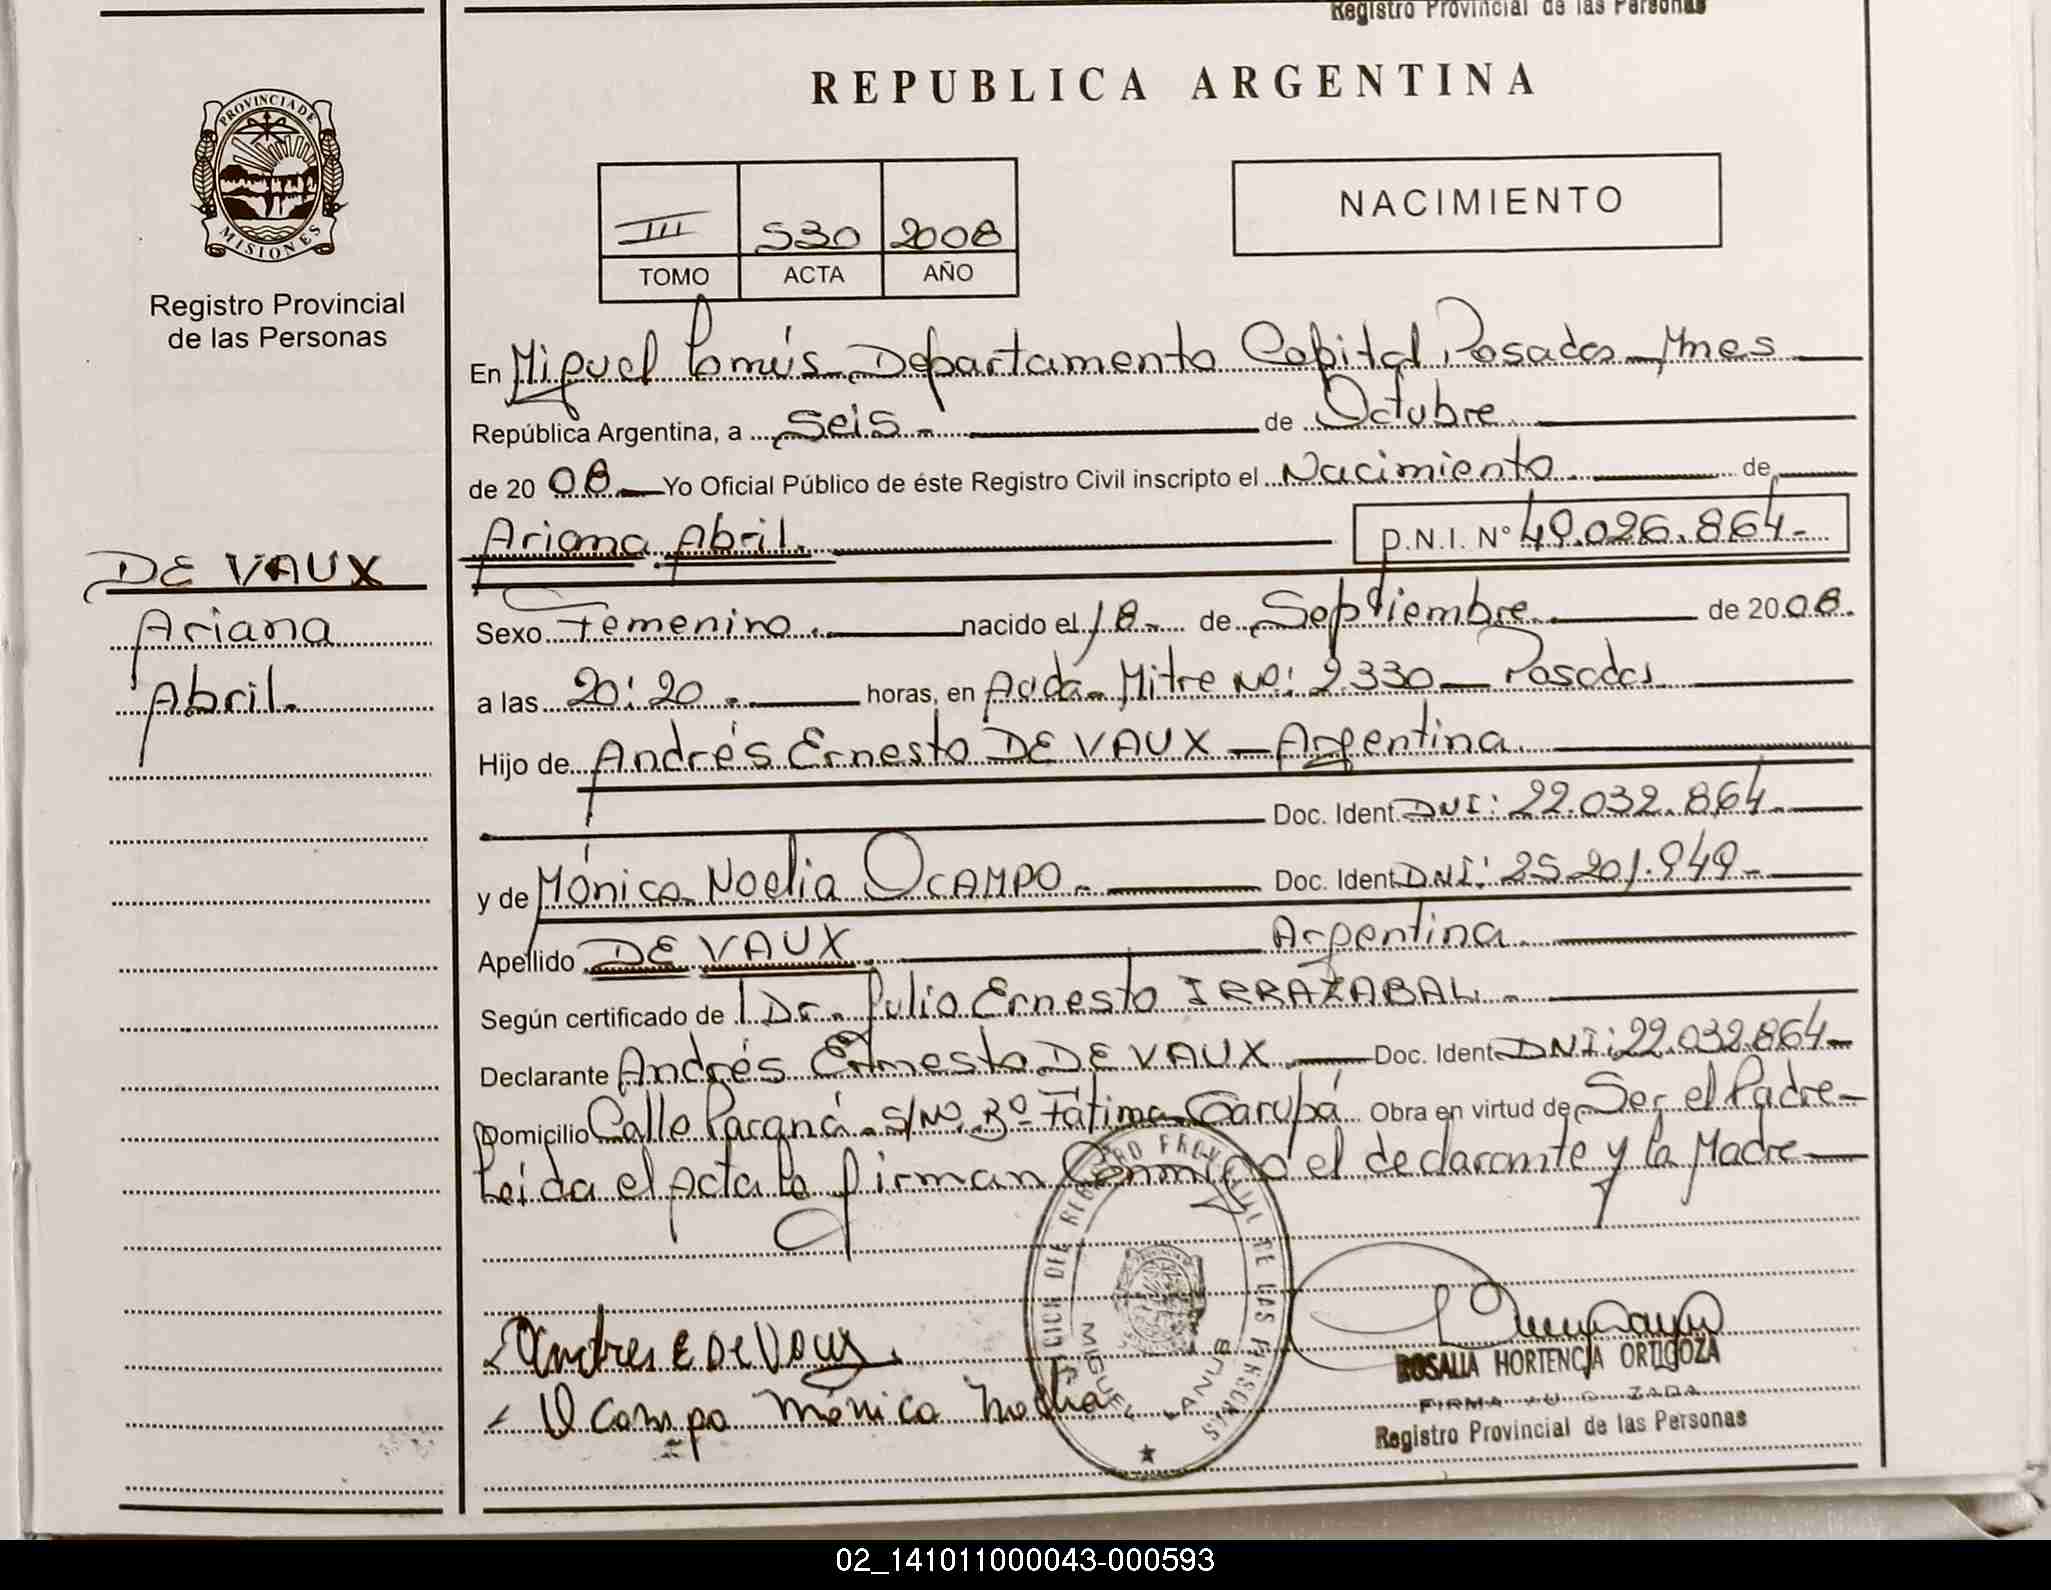 Registro Provincial de las Personas
REPUBLICA ARGENTINA
PROVINCIA DE
MISIONES
Registro Provincial
de las Personas
III 530 2008
TOMO ACTA AÑO
NACIMIENTO
En Miguel Lanús Departamento Capital Posadas Mnes
República Argentina, a Seis.- de Octubre
de 20 08.- Yo Oficial Público de éste Registro Civil inscripto el Nacimiento de
Ariana Abril. D.N.I. Nº 49.026.864-
DE VAUX
Ariana
Abril.
Sexo Femenino. nacido el 18- de Septiembre de 20 08.
a las 20:20.- horas, en Avda. Mitre No: 2.330 - Posadas
Hijo de Andrés Ernesto DE VAUX - Argentina.
Doc. Ident. DNI: 22.032.864-
y de Mónica Noelia OCAMPO.- Doc. Ident. DNI: 25.201.949-
Apellido DE VAUX. Argentina.
Según certificado de l Dr. Julio Ernesto IRRAZABAL.-
Declarante Andrés Ernesto DE VAUX.- Doc. Ident. DNI: 22.032.864-
Domicilio Calle Paraná. S/Nº. Bº Fátima Garupá Obra en virtud de Ser el Padre-
Leida el Acta la firman Conmigo el declarante y la Madre-
Andres E De Vaux.
Ocampo Mónica Noelia
DEL REGISTRO PROVINCIAL DE LAS PERSONAS
MIGUEL LANUS
ROSALIA HORTENCIA ORTIGOZA
FIRMA AUTORIZADA
Registro Provincial de las Personas
02_141011000043-000593